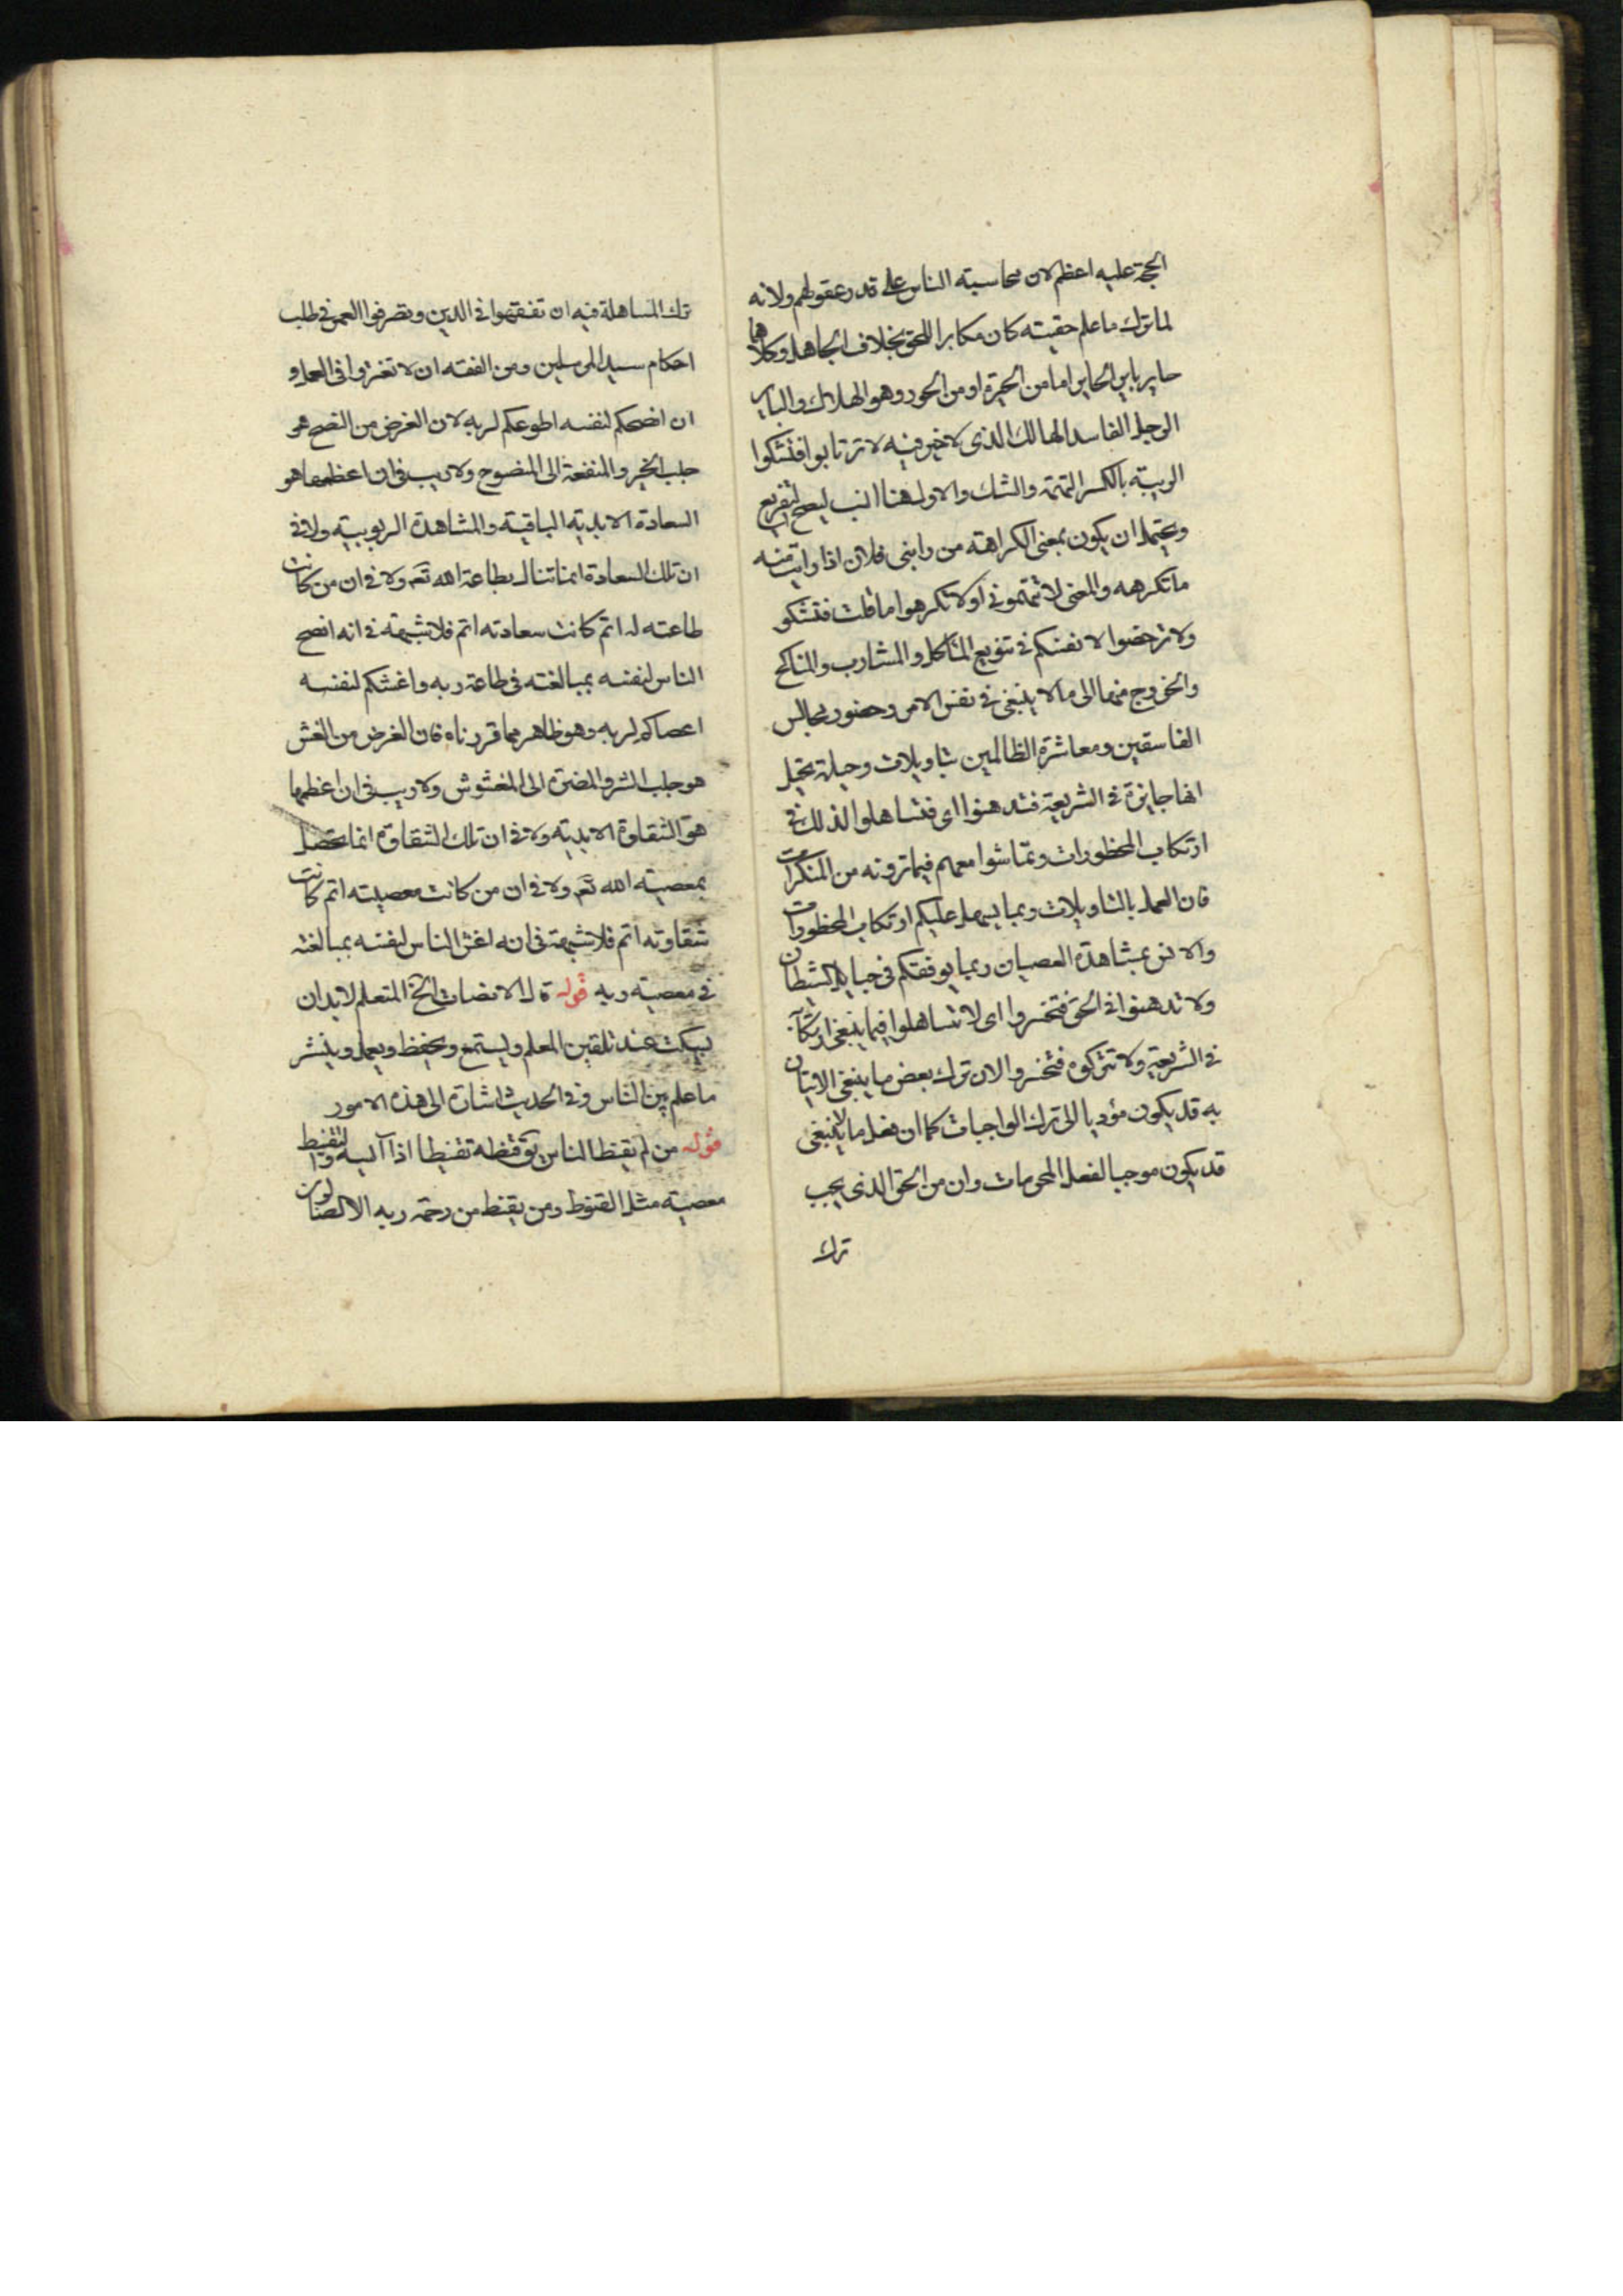 الحجة عليه اعظم لان محاسبة الناس على قدر عقولهم ولانه
لما ترك ما علم حقيته كان مكابرا للحق بخلاف الجاهل وكلاهما
حاير باير الحاير اما من الحيرة او من الحور وهو الهلاك والباير
الرجل الفاسد الهالك الذى لا خير فيه لا ترتابوا فتشكوا
الريبة بالكسر التهمة والشك والاول هنا انسب ليصح التفريع
ويحتمل ان يكون بمعنى الكراهة من رابنى فلان اذا رايت منه
ما تكرهه والمعنى لا تتهمونى او لا تكرهوا ما قلت فتشكو
ولا ترخصوا لانفسكم فى تنويع المآكل والمشارب والمناكح
والخروج منها الى ما لا ينبغى فى نفس الامر وحضور مجالس
الفاسقين ومعاشرة الظالمين بتاويلات وحيلة يخيل
انها جايزة فى الشريعة فتدهنوا اى فتساهلوا لذلك فى
ارتكاب المحظورات وتماشوا معهم فيما ترونه من المنكرات
فان العمل بالتاويلات ربما يسهل عليكم ارتكاب المحظورات
والانس بمشاهدة العصيان ربما يوقعكم فى حبايل الشيطان
ولا تدهنوا فى الحق فتخسروا اى لا تساهلوا فيما ينبغى ارتكابه
فى الشريعة ولا تتركوه فتخسروا لان ترك بعض ما ينبغى الاتيان
به قد يكون مؤديا الى ترك الواجبات كما ان فعل ما لا ينبغى
قد يكون موجبا لفعل المحرمات وان من الحق الذى يجب
ترك
ترك المساهلة فيه ان تفقهوا فى الدين وتصرفوا العمر فى طلب
احكام سيد المرسلين ومن الفقه ان لا تغتروا فى العمل و
ان انصحكم لنفسه اطوعكم لربه لان الغرض من النصح هو
جلب الخير والمنفعة الى المنصوح ولا ريب فى ان اعظمها هو
السعادة الابدية الباقية والمشاهدة الربوبية ولا فى
ان تلك السعادة انما تنال بطاعة الله تعـ ولا فى ان من كانت
طاعته له اتم كانت سعادته اتم فلا شبهة فى انه انصح
الناس لنفسه بمبالغته فى طاعة ربه واغشكم لنفسه
اعصاكم لربه وهو ظاهر مما قررناه فان الغرض من الغش
هو جلب الشر والمضرة الى المغشوش ولا ريب فى ان اعظمها
هو الشقاوة الابدية ولا فى ان تلك الشقاوة انما تحصل
بمعصية الله تعـ ولا فى ان من كانت معصيته اتم كانت
شقاوته اتم فلا شبهة فى انه اغش الناس لنفسه بمبالغته
فى معصية ربه قوله قال الانصات الخ المتعلم لا بد ان
يسكت عند تلقين المعلم ويستمع ويحفظ ويعمل وينشر
ما علم بين الناس وفى الحديث اشارة الى هذه الامور
قوله من لم يقنط الناس يق قنطه تقنيطا اذا آيسه والتقنيط
معصية مثل القنوط ومن يقنط من رحمة ربه الا الضالون